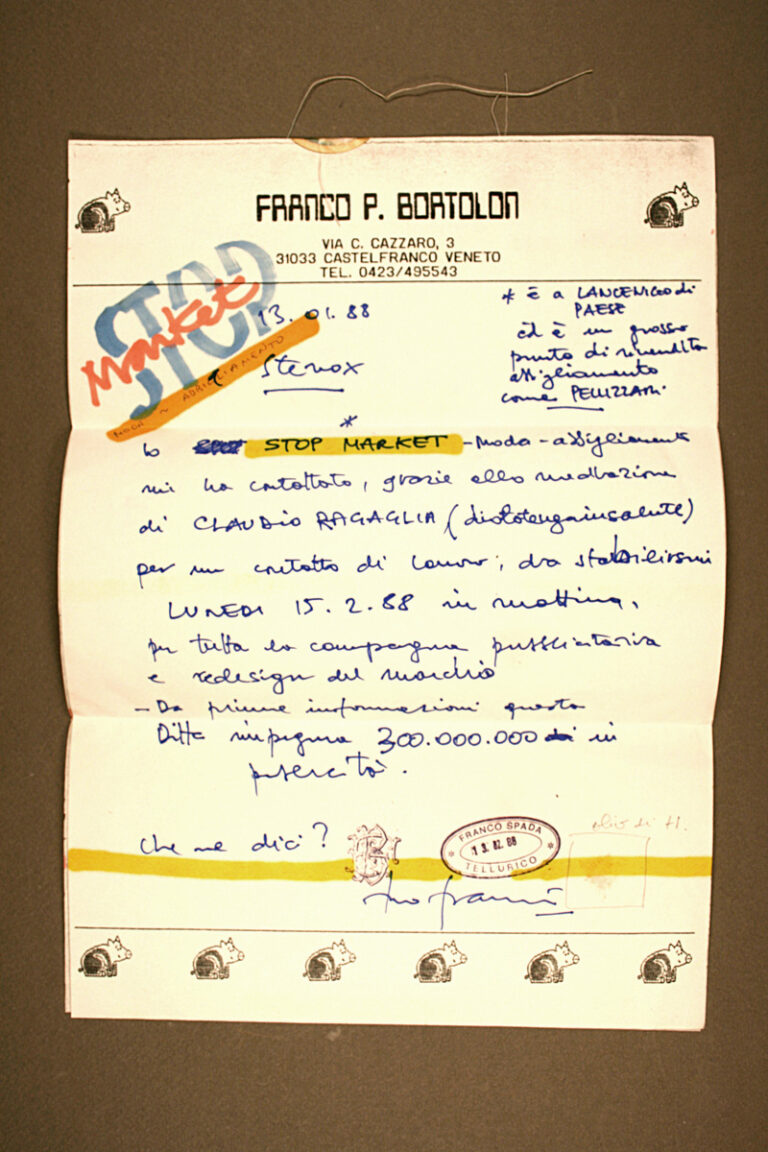 FRANCO P. BORTOLON
VIA C. CAZZARO, 3
31033 CASTELFRANCO VENETO
TEL. 0423/495543
STOP
Market
STOP
MODA ~ ABBIGLIAMENTO
13.01.88
Stenox
* è a LANCENIGO di
PAESE
ed è un grosso
punto di rivendita
abbigliamento
come PELLIZZARI.
*
lo STOP MARKET - moda - abbigliamento
mi ha contattato, grazie alla mediazione
di CLAUDIO RAGAGLIA (diolotengainsalute)
per un contatto di lavoro; da stabilirsi
LUNEDI 15.2.88 in mattina,
per tutta la campagna pubblicitaria
e redesign del marchio
- Da prime informazioni questa
Ditta impegna 300.000.000 in
pubblicità.
Che ne dici?
FRANCO SPADA
* 13.02.88 *
TELLURICO
tuo franco